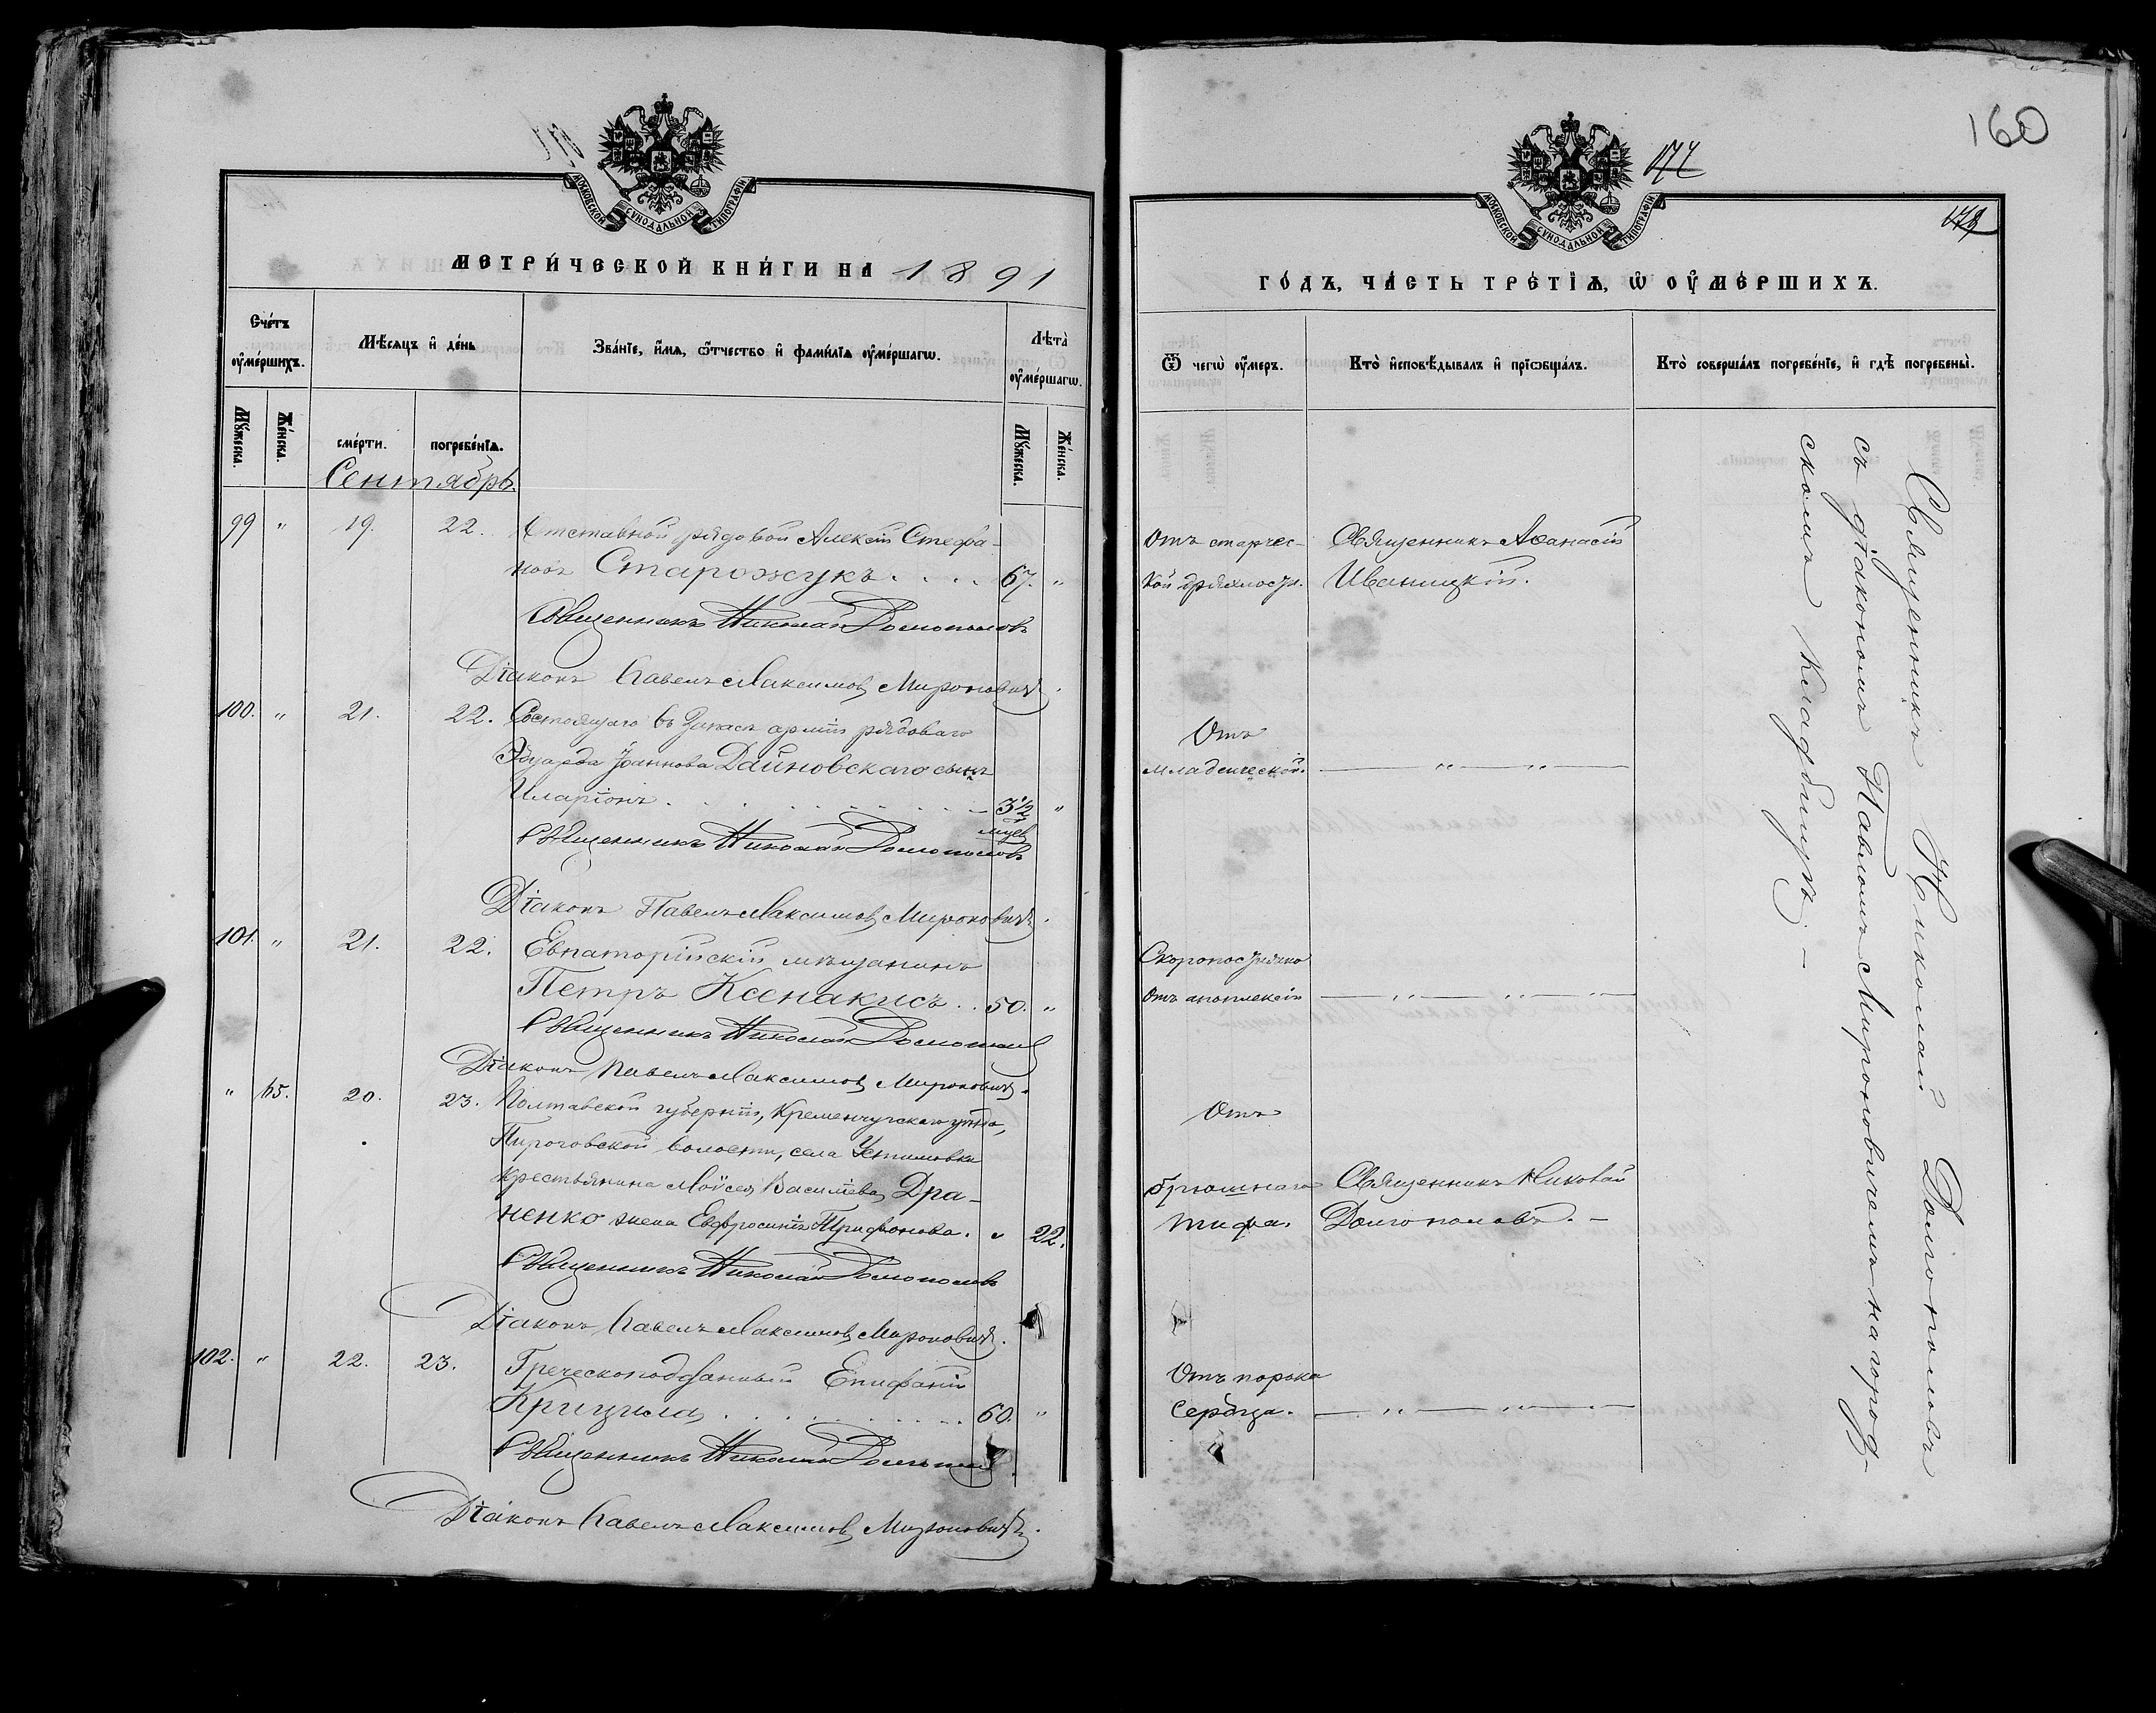 МОСКОВСКОЙ СѴНОДАЛЬНОЙ ТИПОГРАФІИ
МЕТРИ́ЧЕСКОЙ КНИ́ГИ НА 1891
Сче́тъ ᲂу҆ме́ршихъ.
Мѣ́сяцъ и҆ де́нь
Зва́нїе, и҆́мѧ, ѻ҆́тчество и҆ фами́лїѧ ᲂу҆ме́ршагѡ.
Лѣта̀ ᲂу҆ме́ршагѡ.
Мꙋ́жеска.
Же́нска.
сме́рти.
погребе́нїѧ.
Мꙋ́жеска.
Же́нска.
Сентябрь.
99 " 19. 22. Отставной рядовой Алексій Стефа-
новъ Старожукъ . . . . 67. "
Священникъ Николай Долгополовъ
Діаконъ Павелъ Максимов Мироновичъ.
100. " 21. 22. Состоящаго въ Запасѣ арміи рядоваго
Эдуарда Іоаннова Дайновскаго сынъ
Иларіонъ . . . . . . . . 3½ "
мѣсц
Священникъ Николай Долгополовъ
Діаконъ Павелъ Максимов Мироновичъ.
101. " 21. 22. Евпаторійскій мѣщанинъ
Петръ Ксенакисъ . . 50. "
Священникъ Николай Долгополов
Діаконъ Павелъ Максимов Мироновичъ.
" 65. 20. 23. Полтавской губерніи, Кременчугскаго уѣзда,
Пироговской волости, села Устимовки
крестьянина Моѵсея Василіева Дра-
ненко жена Евфросинія Трифонова . " 22.
Священникъ Николай Долгополовъ
Діаконъ Павелъ Максимов Мироновичъ.
102. " 22. 23. Греческоподданный Епифаній
Крицила . . . . . . . . 60. "
Священникъ Николай Долгополов
Діаконъ Павелъ Максимов Мироновичъ.
160
174
МОСКОВСКОЙ СѴНОДАЛЬНОЙ ТИПОГРАФІИ
ГО́ДЪ, ЧА́СТЬ ТРЕ́ТІѦ, Ѡ҆ ОУ҆МЕ́РШИХЪ.
Ѿ чегѡ̀ ᲂу҆́меръ.
Кто̀ и҆сповѣ́дывалъ и҆ прїѡбща́лъ.
Кто̀ соверша́лъ погребе́нїе, и҆ гдѣ̀ погребены̀.
Отъ старчес- Священникъ Аѳанасій
кой дряхлости. Иваницкій.
Отъ
младенческой. — " — " —
Скоропостижно
отъ апоплексіи — " — " — " —
Отъ
брюшнаго Священникъ Николай
тифа. Долгополовъ. —
Отъ порока
сердца. — " — " —
Священникъ Николай Долгополовъ
съ діакономъ Павломъ Мироновичемъ на город-
скомъ кладбищѣ. —